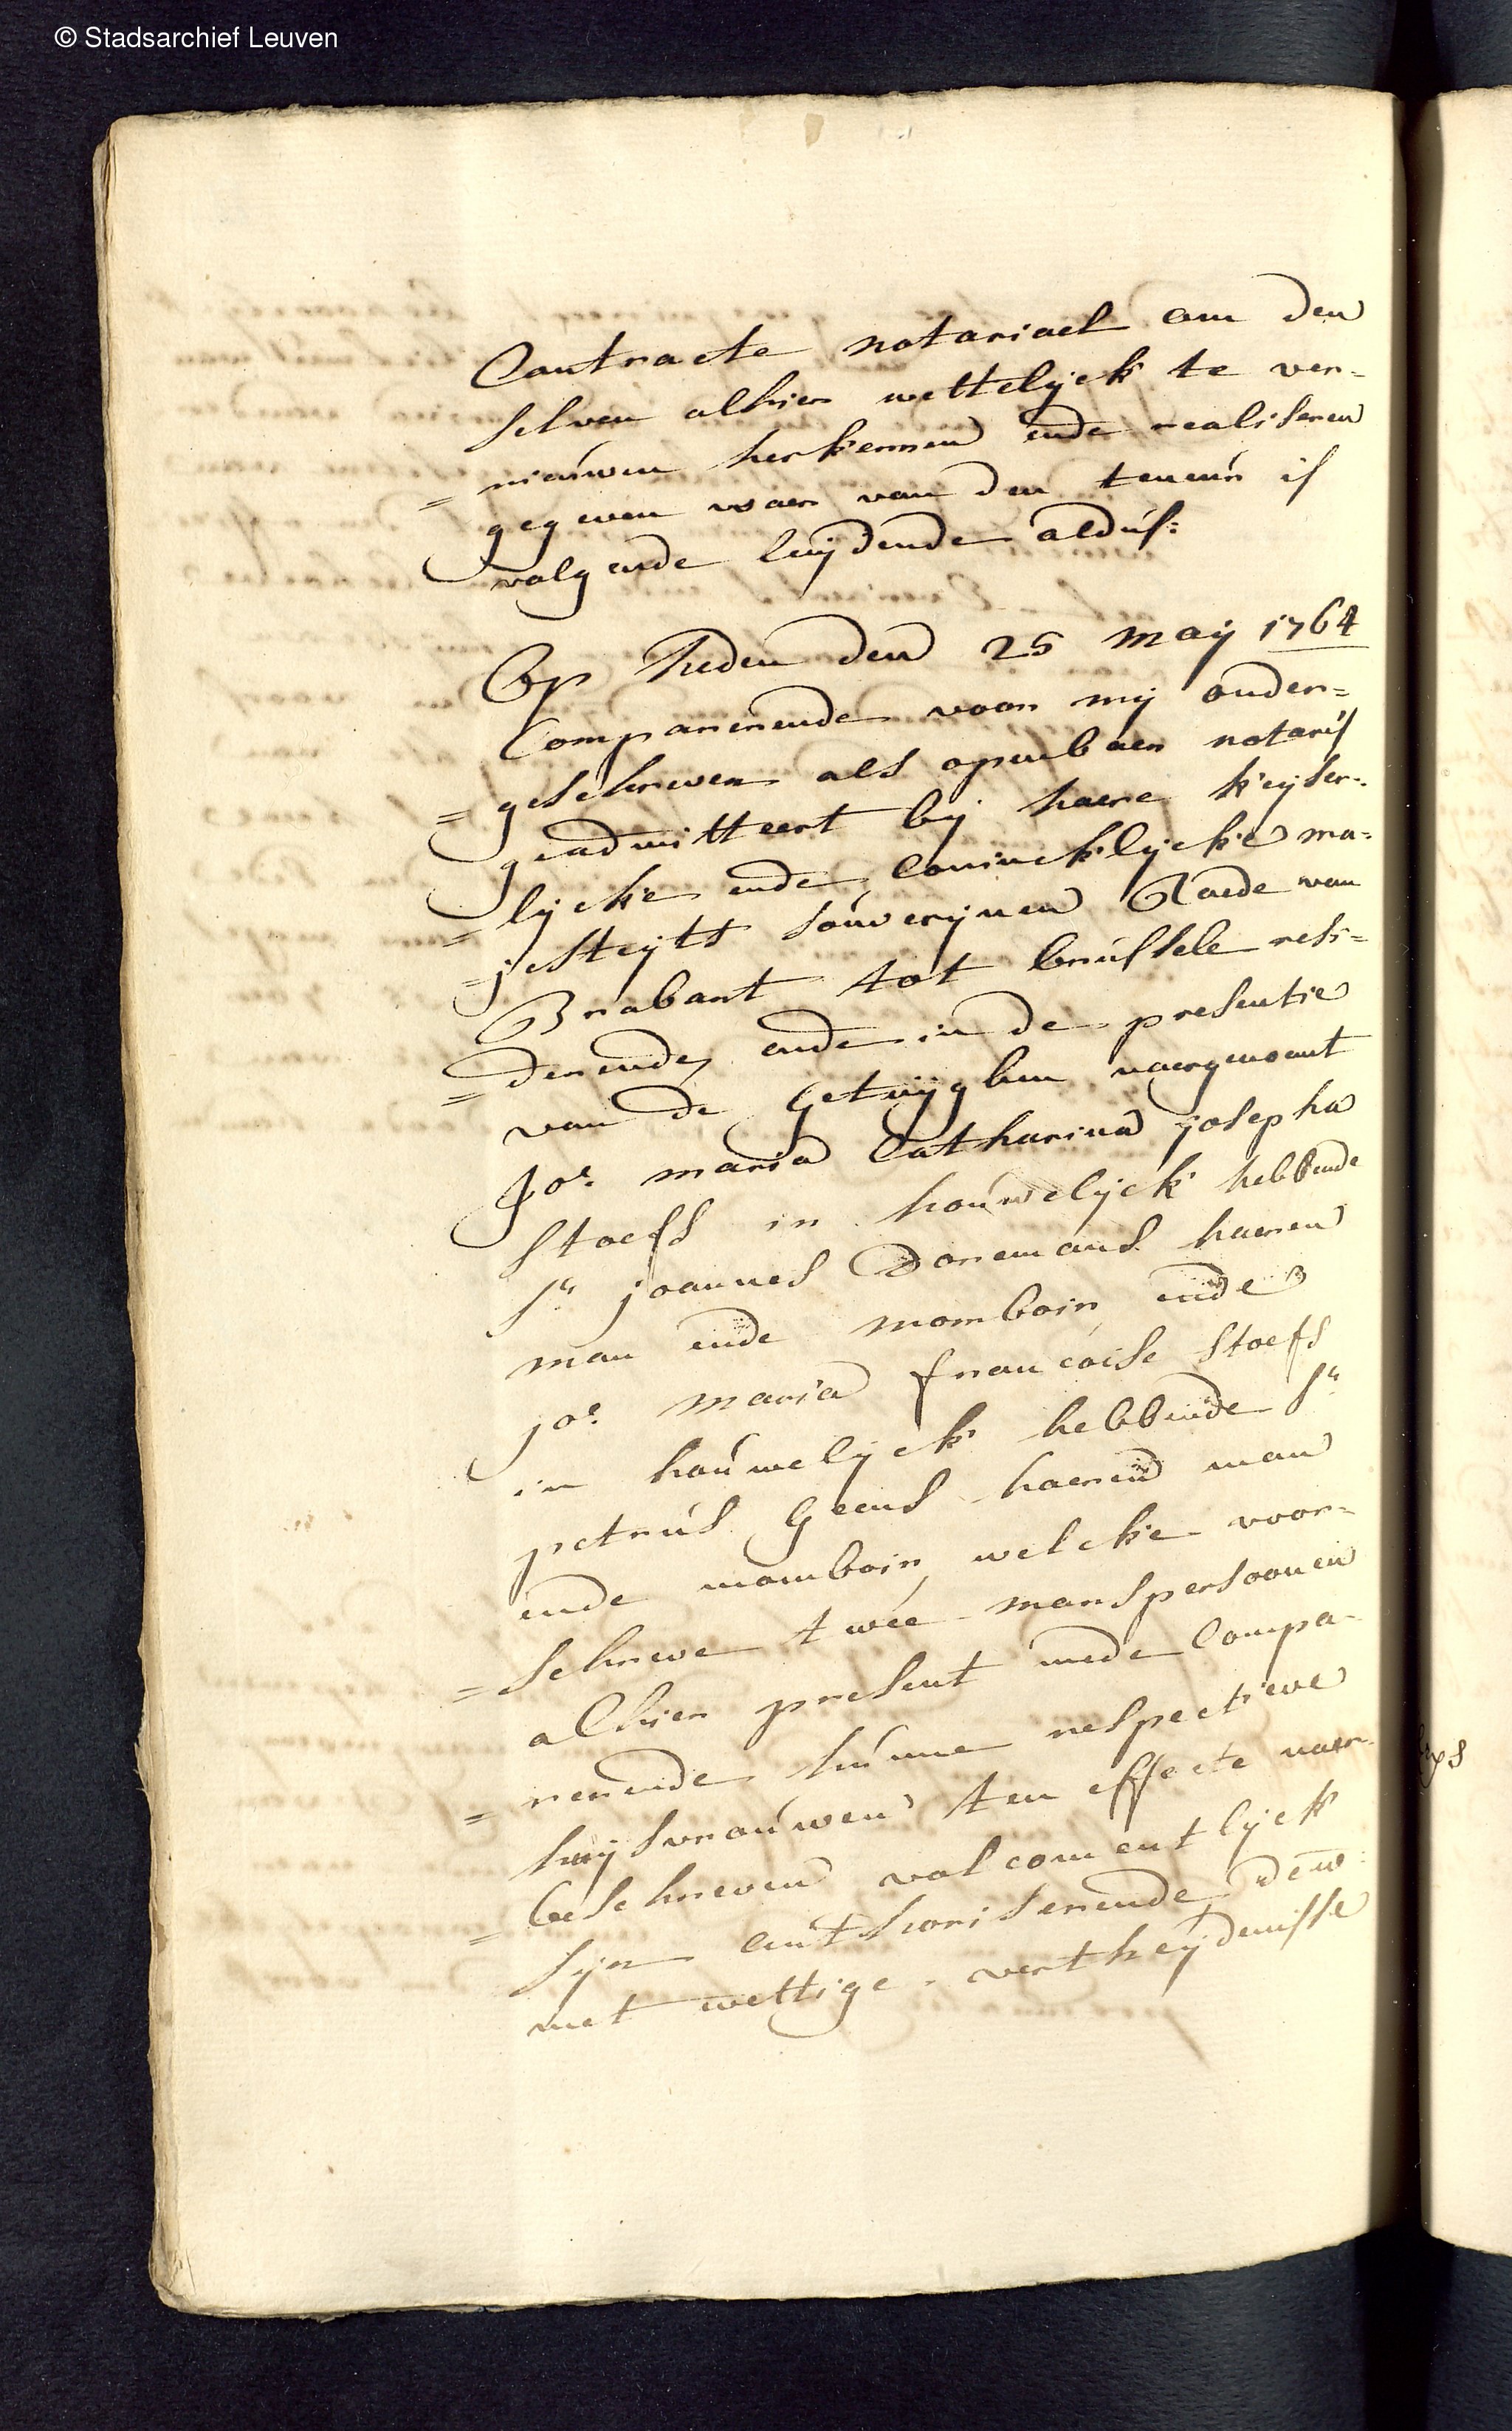 © Stadsarchief Leuven
Contracte notariael om den
selven alhier wettelijck te ver=
=nieúwen herkennen ende realiseren
gegeven waer van den teneúr is
volgende luijdende aldús:
Op heden den 25 maij 1764
Comparerende voor mij onder=
=geschreven als openbaer notaris
geadmitteert bij haere keijser=
=lijcke ende Conincklijcke ma=
=jesteijts souverijnen Raede van
Brabant tot brússele resi=
=derende, ende in de presentie
van de getuijghen naergenoemt
Joe. maria Catharina josepha
Stoefs in hoúwelijck hebbende
Sr. joannes Doremans haeren
man ende momboir, ende
joe. maria francoise Stoefs
in hoúwelijck hebbende Sr.
petrús Geens haeren man
ende momboir, welcke voor=
=schreve twée manspersoonen
alhier present mede Compa=
=rerende húnne respectieve
huijsvroúwen ten effecte naer=
=beschreven volcomentlijck
sijn authoriserende, dew
met wettige vertheijdenisse